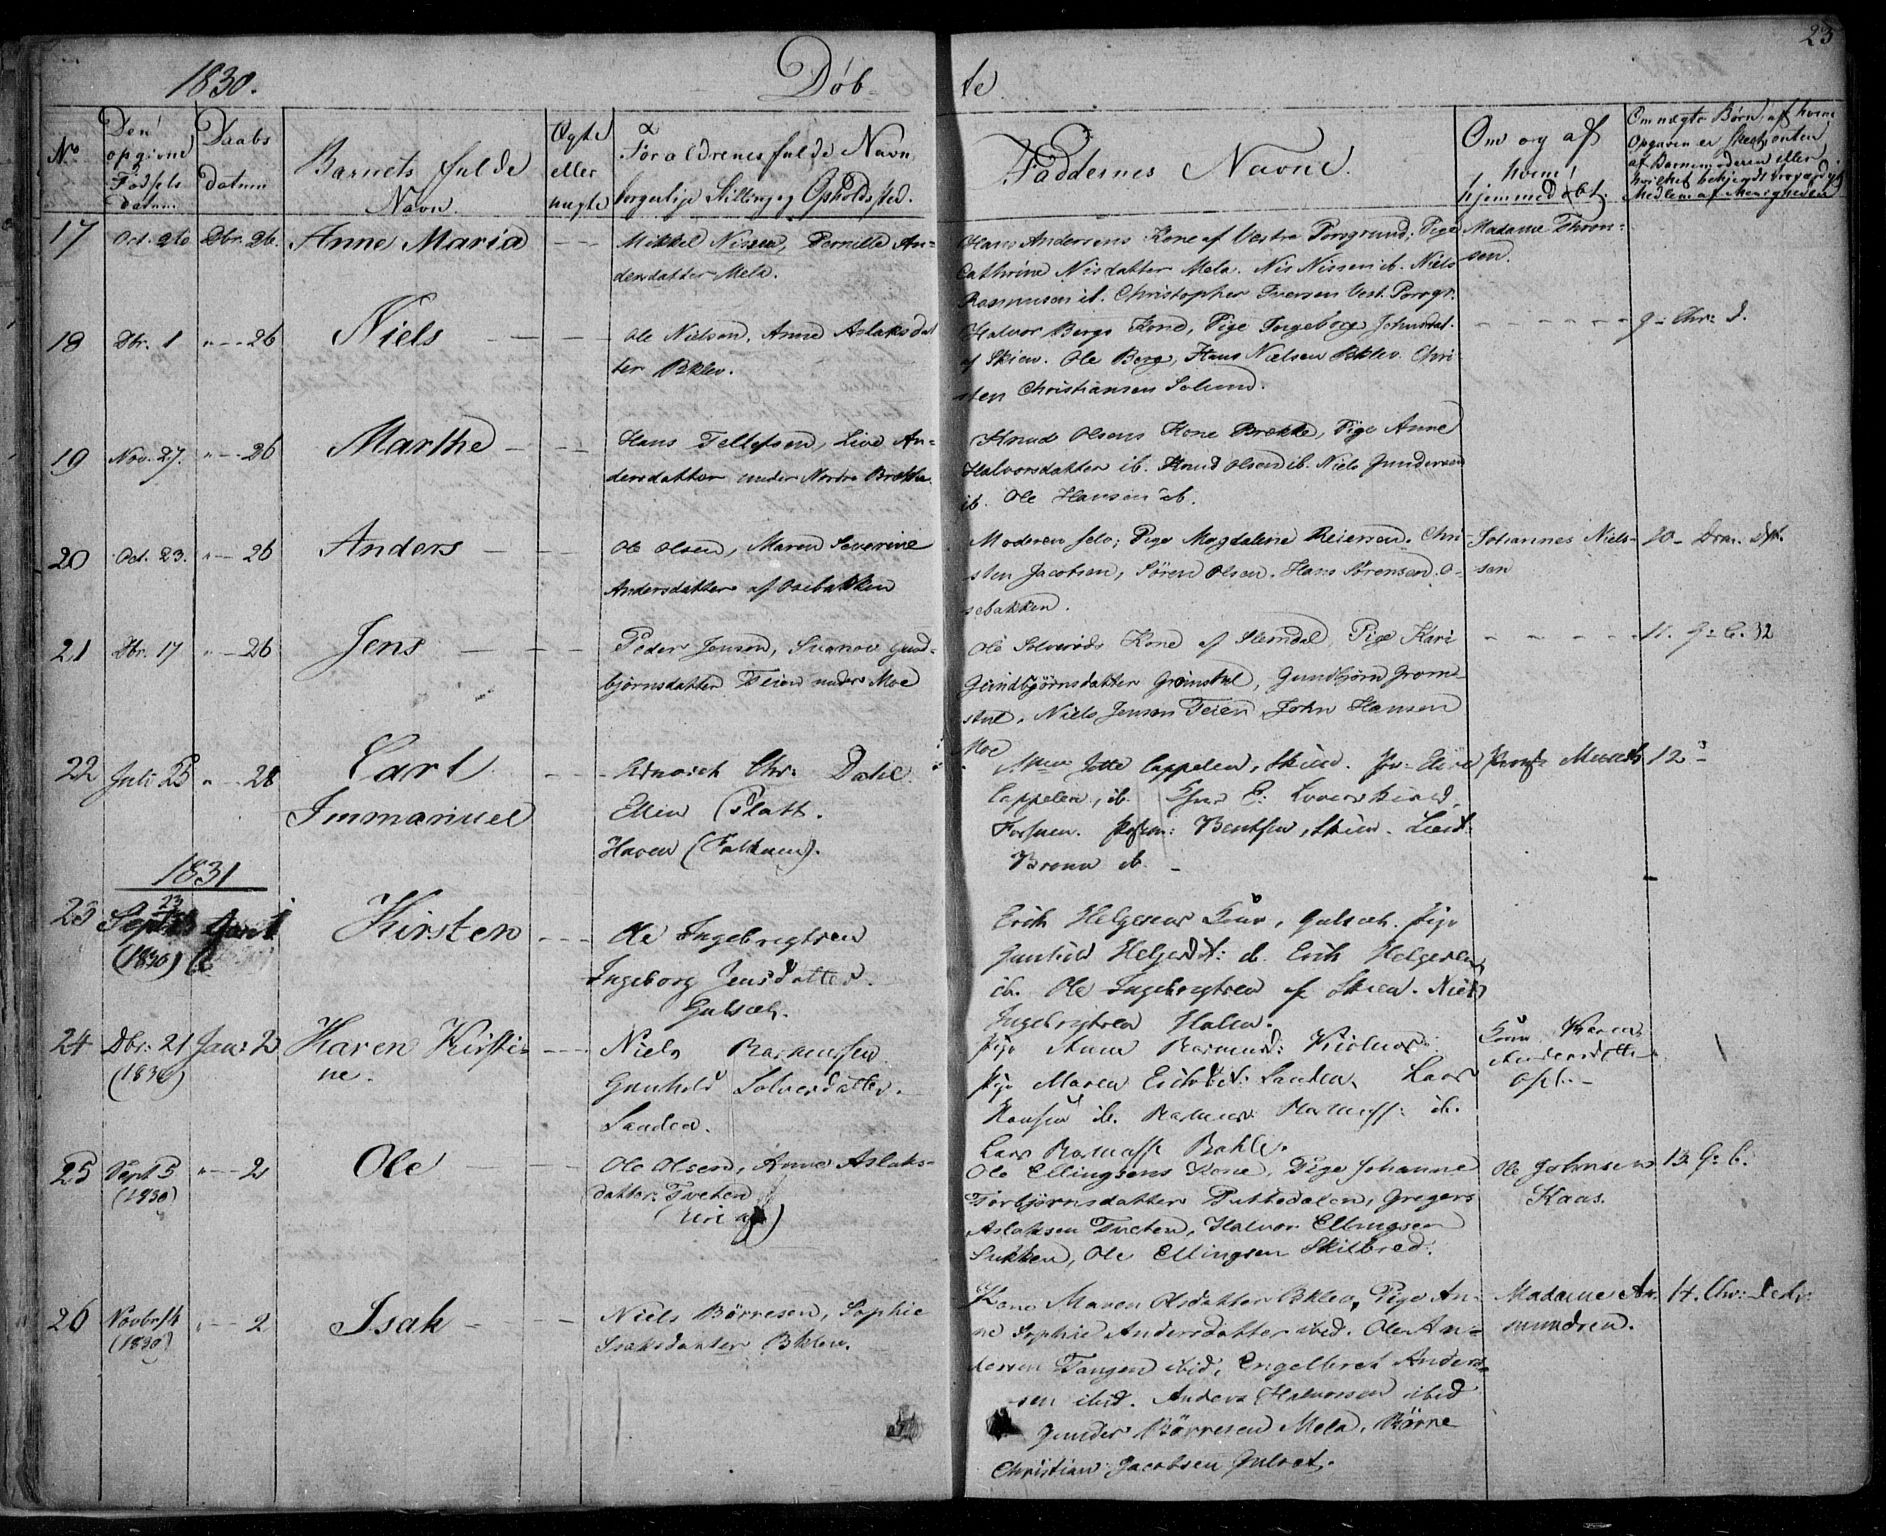 23
1830.
Døbte
No
Den opgivne Fødsels datum.
Daabs datum
Barnets fulde Navn.
Ægte eller uægte
Forældrenes fulde Navn, borgerlige Stilling og Opholdsted.
Faddernes Navne.
Om og af hvem hjemmedøbt.
Om uægte Børn, af hvem Opgaven er skeet, enten af Barnemoderen eller hvilket bekjendt troværdigt Medlem af Menigheden
17 Oct. 26 Dbr. 26. Anne Maria — — Mikkel Nissen, Pernille An-
dersdatter Mela.
Hans Andersens Kone af Vestre Porsgrund; Pige
Cathrine Nisdatter Mela. Nis Nissen ib. Niels
Rasmusen ib. Christopher Iversen Vest. Porsgr.
Madame Thron-
sen.
18 Dbr. 1 " — 26 Niels — — — Ole Nielsen, Anne Aslaksdat
ter Bklev.
Halvor Bergs Kone, Pige Ingeborg Johnsdat.
af Skien. Ole Berg, Hans Nielsen Bklev. Chri
sten Christiansen Solund.
— — — — — 9 - Chr. d.
19 Nov. 27. " — 26 Marthe — — — Hans Tellefsen, Live An-
dersdatter under Nordre Brekke.
Knud Olsens Kone Brekke, Pige Anne
Halvorsdatter ib. Knud Olsen ib. Niels Gundersen
ib. Ole Hansen ib.
20 Oct. 23. " — 26 Anders — — — Ole Olsen, Maren Severine
Andersdatter af Osebakken
Moderen selv; Pige Magdalene Reiersen. Chri-
sten Jacobsen, Sören Olsen. Hans Sörensen. O-
sebakken.
Johannes Niels-
sen
10 -
21 Dbr. 17 " — 26 Jens — — — Peder Jensen, Gund-
björnsdatter Feien under Moe
Ole Kone af Stendal, Pige Kari
Gundbjörnsdatter Grönstul, Gundbjörn Grøn
stul, Niels Jensen Feien, John Hansen
Moe
— — — — — 11. G. C. 32
22 Juli 25 " — 28 Carl — — Chr. Dahl
Immanuel Ellen Platt.
Haven (Falkum).
Jette Cappelen, Skien.
Cappelen, ib. Løvenskiold,
Fossum. Bentsen, Skien. Lieut:
Bruun ib. —
Munch 12
1831
23 Sept. 23 Jan: 1 Kirsten — — — Ole Ingebrigtsen
(1830)
Ingeborg Jensdatter.
Gulset.
Erich Helgesens Kone, Gulset. Pige
Gunhild Helgesdt: ib. Erich Helgesen
ib. Ole Ingebrigtsen af Skien. Niels
Ingebrigtsen Halen.
24 Dbr: 21 Jan: 2 Karen Kirsti- — — Niels Rasmussen
(1830) ne.
Gunhild Solversdatter.
Sanden.
Pige Anne Rasmusd:
Pige Maren Erichsdt: Sanden. Lars
Hansen ib. Rasmus Rasmuss: ib.
Lars Rasmuss Bakke.
Kone Karen
Andersdatter
25 Sept 5 " — 2 Ole — — — Ole Olsen, Anne Aslaks-
(1830)
datter Tveten
Ole Ellingsens Kone, Pige Johanne
Torbjörnsdatter Puttedalen, Gregers
Aslaksen Tveten, Halvor Ellingsen
Ole Ellingsen Skilbred.
Ole Johnsen
Kaas.
13. G. C.
26 Novbr: 14 " — 2 Isak — — — Niels Börresen, Sophie
(1830)
Isaksdatter Bklev.
Kone Maren Olsdatter Bklev, Pige An-
ne Sophie Andersdatter ibid. Ole An-
dersen Tangen ibid, Engelbret Anders-
sen ibid. Anders Halvorsen ibid
Gunder Börresen Mela. Börre
Christian Jacobsen Gulset.
Madame As-
mundsen.
14. Chr: